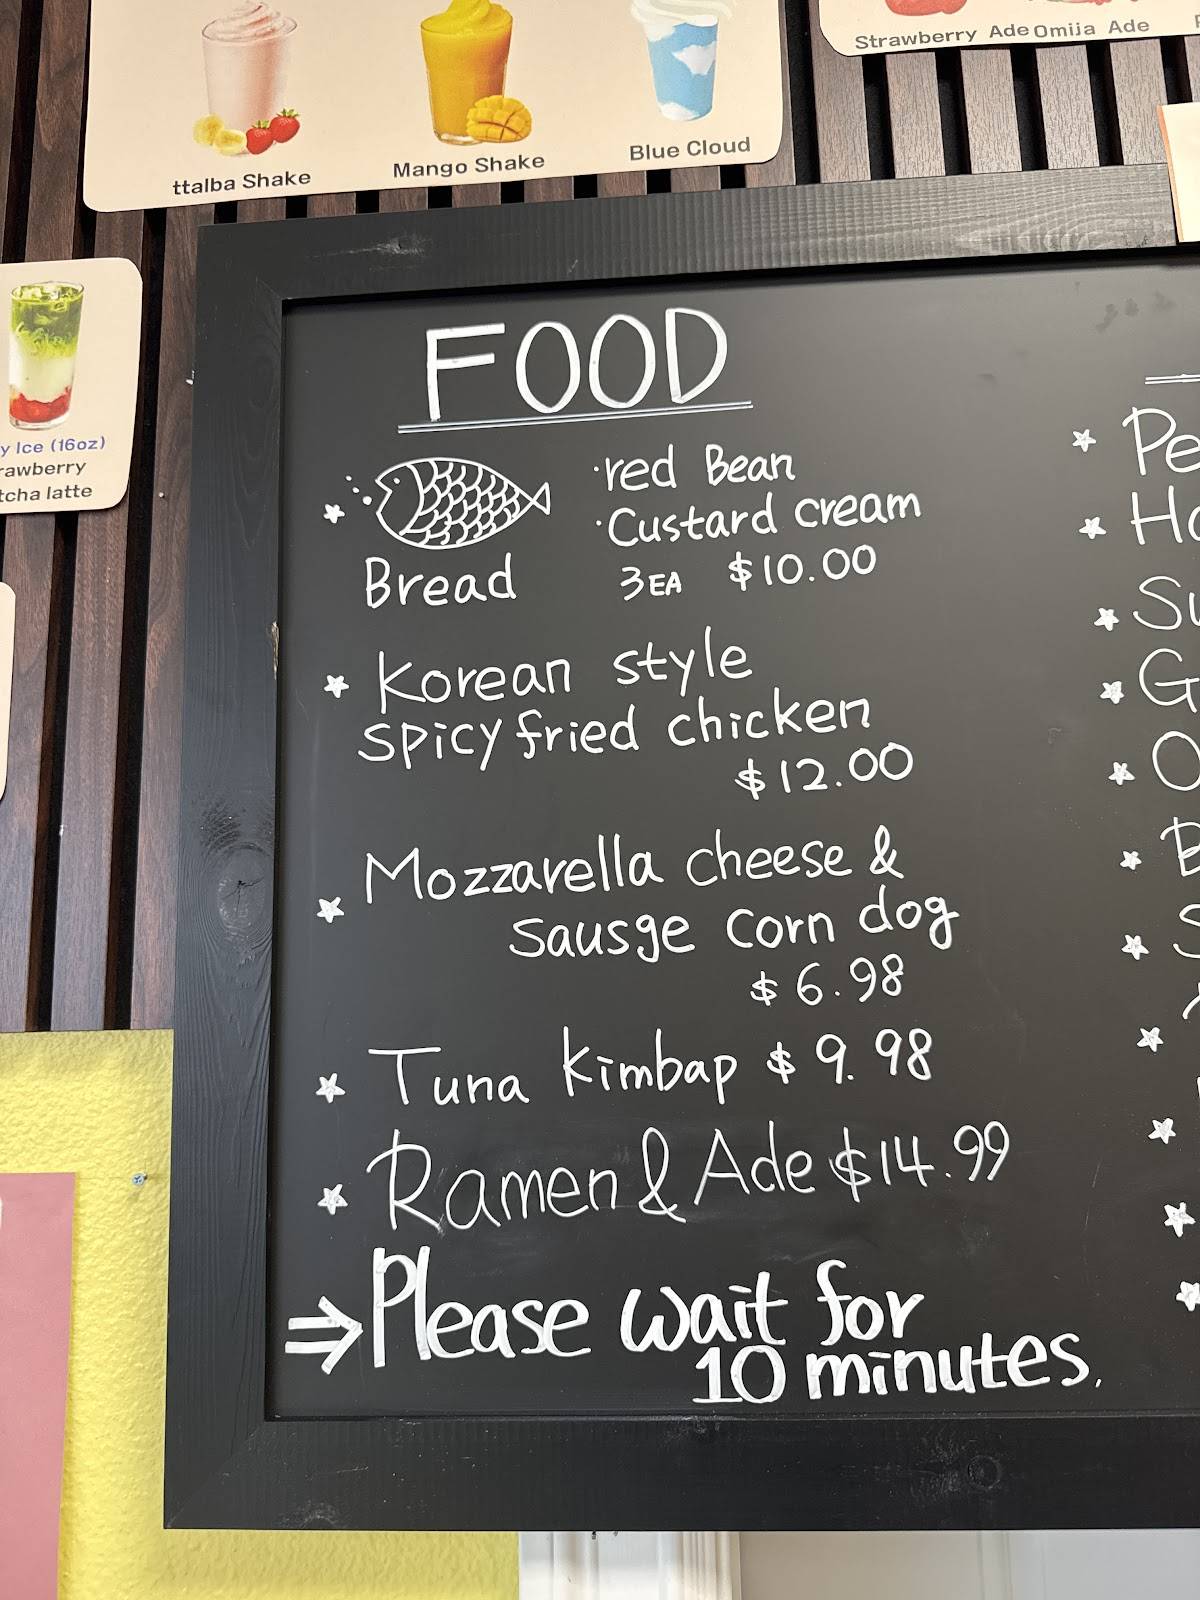 Strawberry Ade Omija Ade
ttalba Shake
Mango Shake
Blue Cloud
y Ice (16oz)
rawberry
tcha latte
FOOD
·red Bean
·Custard cream
Bread
3EA $10.00
Korean style
spicy fried chicken
$12.00
Mozzarella cheese &
Sausge corn dog
$6.98
Tuna kimbap $9.98
Ramen & Ade $14.99
⇒Please wait for
10 minutes.
Pe
Ho
Su
G
O
B
S